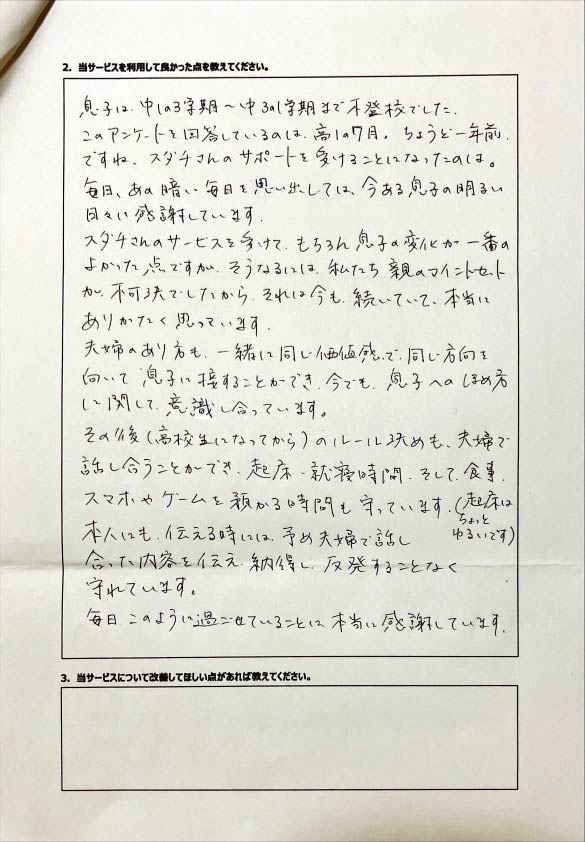 2. 当サービスを利用して良かった点を教えてください。
息子は、中1の3学期〜中3の1学期まで不登校でした。
このアンケートを回答しているのは、高1の7月。ちょうど一年前
ですね、スダチさんのサポートを受けることになったのは。
毎日、あの暗い毎日を思い出しては、今ある息子の明るい
日々に感謝しています。
スダチさんのサービスを受けて、もちろん息子の変化が一番の
よかった点ですが、そうなるには、私たち親のマインドセット
が、不可決でしたから、それは今も、続いていて、本当に
ありがたく思っています。
夫婦のあり方も、一緒に同じ価値感で、同じ方向を
向いて息子に接することができ、今でも、息子へのほめ方
に関して、意識し合っています。
その後(高校生になってから)のルール決めも、夫婦で
話し合うことができ、起床・就寝時間、そして、食事、
スマホやゲームを預かる時間も守っています。(起床は
ちょっと
ゆるいです)
本人にも、伝える時には、予め夫婦で話し
合った内容を伝え、納得し、反発することなく
守れています。
毎日このように過ごせていることに本当に感謝しています。
3. 当サービスについて改善してほしい点があれば教えてください。